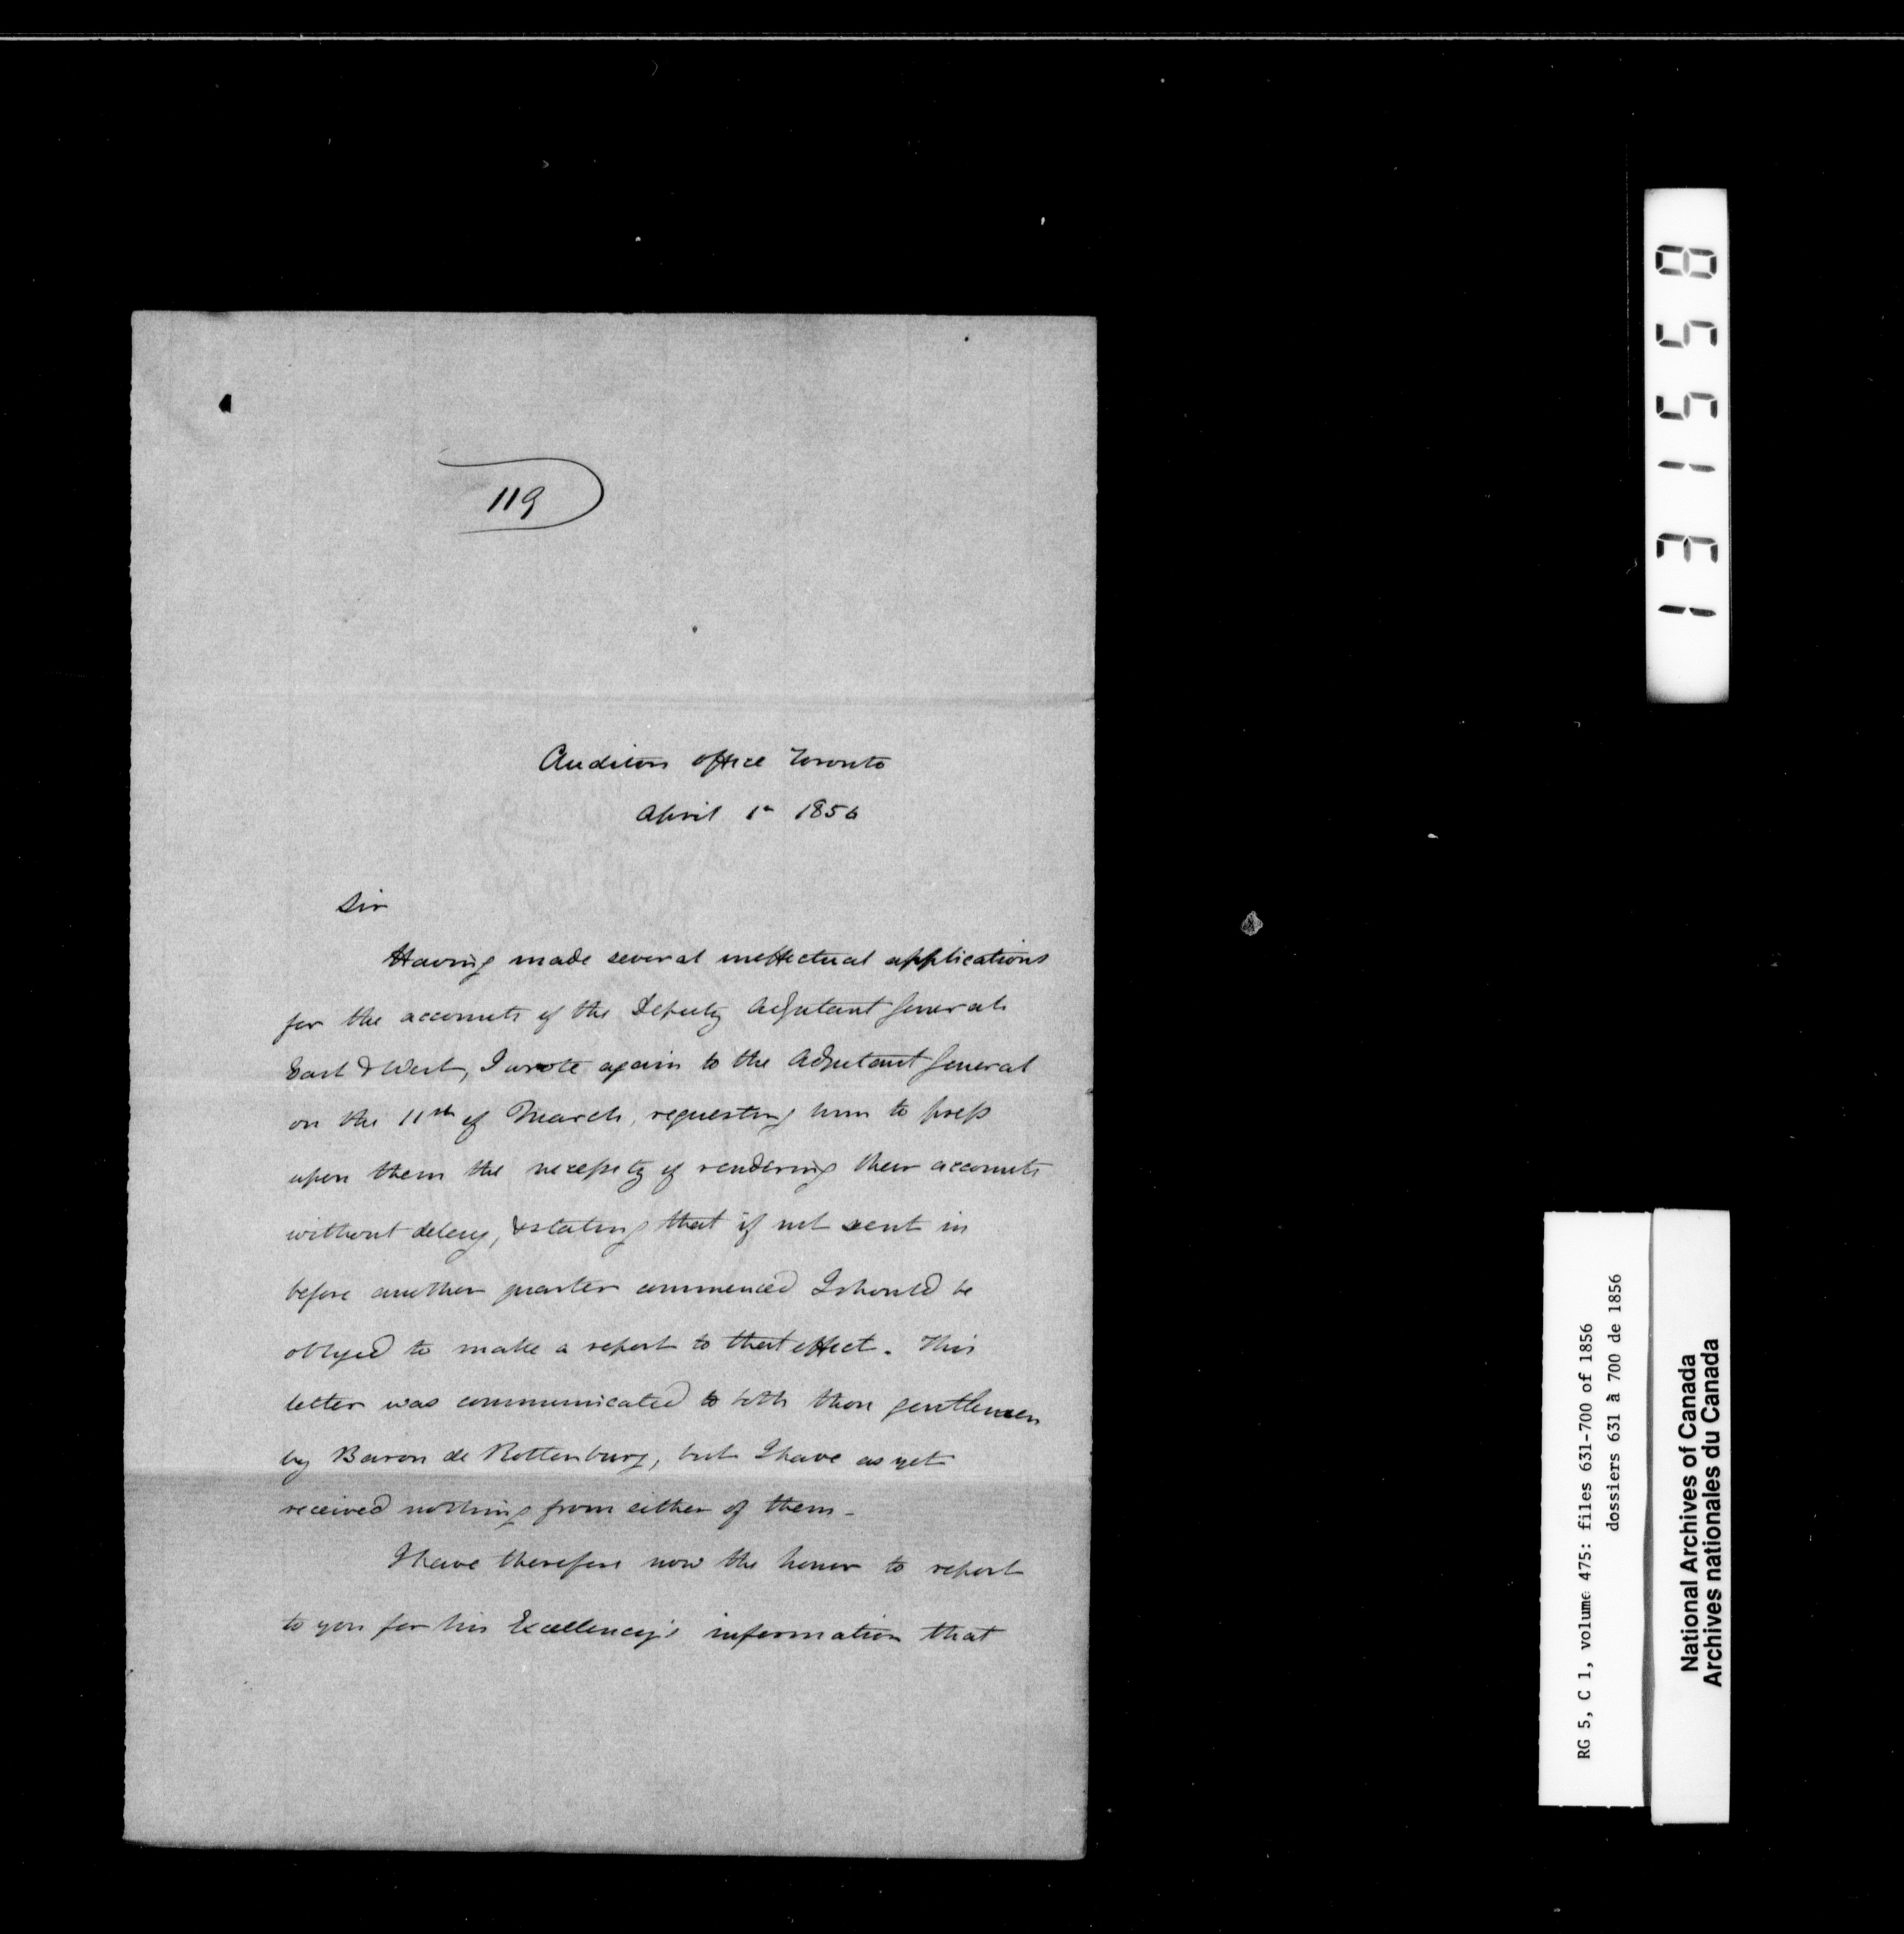 119
Auditors office Toronto
April 1st 1856
Sir
Having made several ineffectual applications
for the accounts of the Deputy Adjutant Generals
East & West, I wrote again to the Adjutant General
on the 11th of March, requesting him to press
upon them the necessity of rendering their accounts
without delay, & stating that if not sent in
before another quarter commenced I should be
obliged to make a report to that effect. This
letter was communicated to both those gentlemen
by Baron de Rottenburg, but I have as yet
received nothing from either of them -
I have therefore now the honor to report
to you for his Excellency's information that
131558
RG 5, C 1, volume 475: files 631-700 of 1856
dossiers 631 à 700 de 1856
National Archives of Canada
Archives nationales du Canada